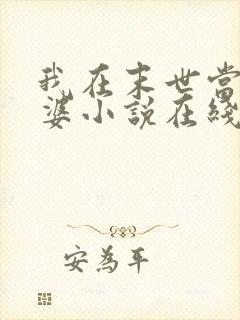 我在末世當
婆小說在綫
安為平